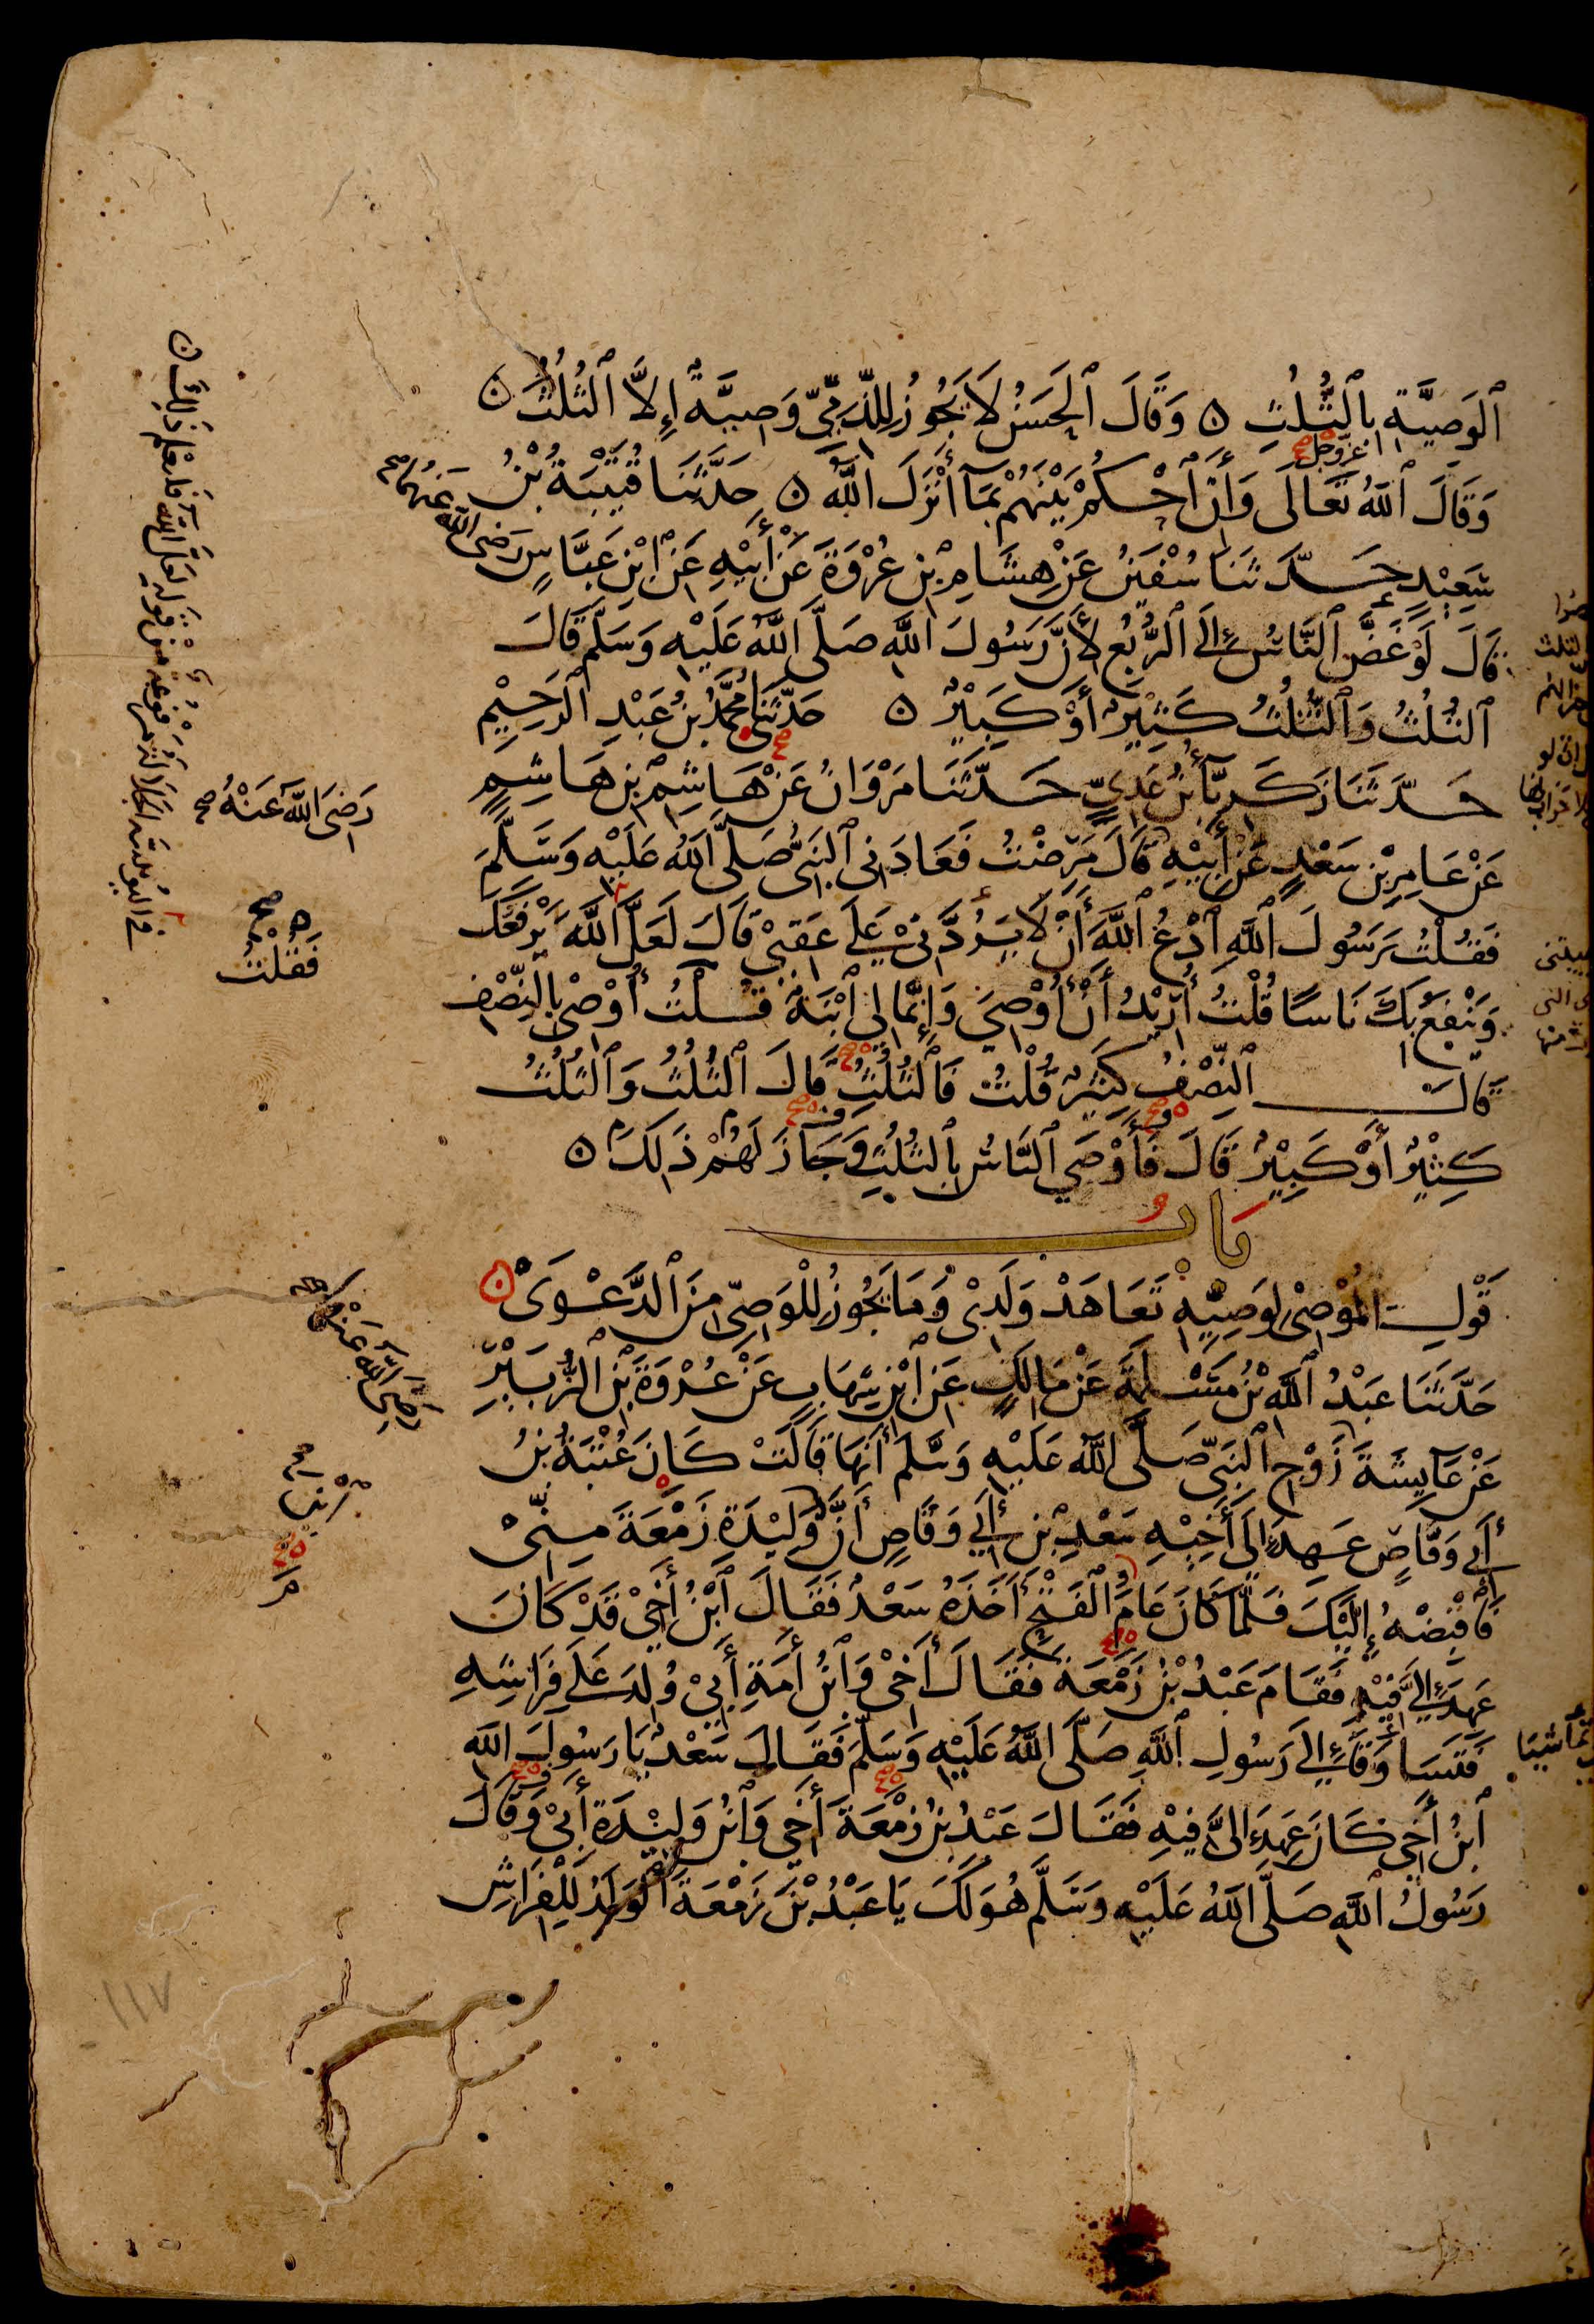 ٱلوَصِيَّةِ بِٱلثُّلُثِ ٥ وَقَالَ ٱلْحَسَنُ لَا يَجُوزُ لِلذِّمِّيِّ وَصِيَّةٌ إِلَّا ٱلثُّلُثَ ٥
عَزَّ وَجَلَّ
وَقَالَ ٱللَّهُ تَعَالَى وَأَنِ ٱحْكُمْ بَيْنَهُمْ بِمَآ أَنْزَلَ ٱللَّهُ ٥ حَدَّثَنَا قُتَيْبَةُ بْنُ
سَعِيْدٍ حَدَّثَنَا سُفْيَنُ عَنْ هِشَامِ بْنِ عُرْوَةَ عَنْ أَبِيْهِ عَنِ ٱبْنِ عَبَّاسٍ رَضِىَ ٱللَّهُ عَنْهُمَا صح
قَالَ لَوْ غَضَّ ٱلنَّاسُ إِلَى ٱلرُّبُعِ لِأَنَّ رَسُولَ ٱللَّهِ صَلَّى ٱللَّهُ عَلَيْهِ وَسَلَّمَ قَالَ
ٱلثُّلُثُ وَٱلثُّلُثُ كَثِيْرٌ أَوْ كَبِيْرٌ ٥ حَدَّثَنِى مُحَمَّدُ بْنُ عَبْدِ ٱلرَّحِيْمِ
حَدَّثَنَا زَكَرِيَّآءُ بْنُ عَدِيٍّ حَدَّثَنَا مَرْوَانُ عَنْ هَاشِمِ بْنِ هَاشِمٍ
عَنْ عَامِرِ بْنِ سَعْدٍ عَنْ أَبِيْهِ قَالَ مَرِضْتُ فَعَادَنِى ٱلنَّبِىُّ صَلَّى ٱللَّهُ عَلَيْهِ وَسَلَّمَ
رَضِىَ ٱللَّهُ عَنْهُ صح
فَقُلْتُ يَرَسُولَ ٱللَّهِ ٱدْعُ ٱللَّهَ أَنْ لَا يَرُدَّنِىْ عَلَى عَقِبِىْ قَالَ لَعَلَّ ٱللَّهَ يَرْفَعُكَ
وَيَنْفَعُ بِكَ نَاسًا قُلْتُ أُرِيْدُ أَنْ أُوْصِىَ وَإِنَّمَا لِى ٱبْنَةٌ قُلْتُ أُوْصِى بِٱلنِّصْفِ
فَقُلْتُ
قَالَ ٱلنِّصْفُ كَثِيْرٌ قُلْتُ فَٱلثُّلُثُ قَالَ ٱلثُّلُثُ وَٱلثُّلُثُ
كَثِيْرٌ أَوْ كَبِيْرٌ قَالَ فَأَوْصَى ٱلنَّاسُ بِٱلثُّلُثِ وَجَازَ لَهُمْ ذَلِكَ ٥
بَابُ
قَوْلِ ٱلْمُوْصِىْ لِوَصِيِّهِ تَعَاهَدْ وَلَدِىْ وَمَا يَجُوزُ لِلْوَصِىِّ مِنَ ٱلدَّعْوَى ٥
حَدَّثَنَا عَبْدُ ٱللَّهِ بْنُ مَسْلَمَةَ عَنْ مَالِكٍ عَنِ ٱبْنِ شِهَابٍ عَنْ عُرْوَةَ بْنِ ٱلزُّبَيْرِ
رَضِىَ ٱللَّهُ عَنْهَا صح
عَنْ عَآئِشَةَ زَوْجِ ٱلنَّبِىِّ صَلَّى ٱللَّهُ عَلَيْهِ وَسَلَّمَ أَنَّهَا قَالَتْ كَانَ عُتْبَةُ بْنُ
أَبِى وَقَّاصٍ عَهِدَ إِلَى أَخِيْهِ سَعْدِ بْنِ أَبِى وَقَّاصٍ أَنَّ وَلِيْدَةِ زَمْعَةَ مِنِّىْ
فَٱقْبِضْهُ إِلَيْكَ فَلَمَّا كَانَ عَامُ ٱلْفَتْحِ أَخَذَهُ سَعْدٌ فَقَالَ ٱبْنُ أَخِىْ قَدْ كَانَ
عَهِدَ إِلَىَّ فِيْهِ فَقَامَ عَبْدُ بْنُ زَمْعَةَ فَقَالَ أَخِى وَٱبْنُ أَمَةِ أَبِىْ وُلِدَ عَلَى فِرَاشِهِ
فَتَسَاوَقَا إِلَى رَسُولِ ٱللَّهِ صَلَّى ٱللَّهُ عَلَيْهِ وَسَلَّمَ فَقَالَ سَعْدٌ يَا رَسُولَ ٱللَّهِ
ٱبْنُ أَخِى كَانَ عَهِدَ إِلَىَّ فِيْهِ فَقَالَ عَبْدُ بْنُ زَمْعَةَ أَخِى وَٱبْنُ وَلِيْدَةِ أَبِىْ وَقَالَ
رَسُولُ ٱللَّهِ صَلَّى ٱللَّهُ عَلَيْهِ وَسَلَّمَ هُوَ لَكَ يَا عَبْدُ بْنَ زَمْعَةَ ٱلْوَلَدُ لِلْفِرَاشِ
١١٧